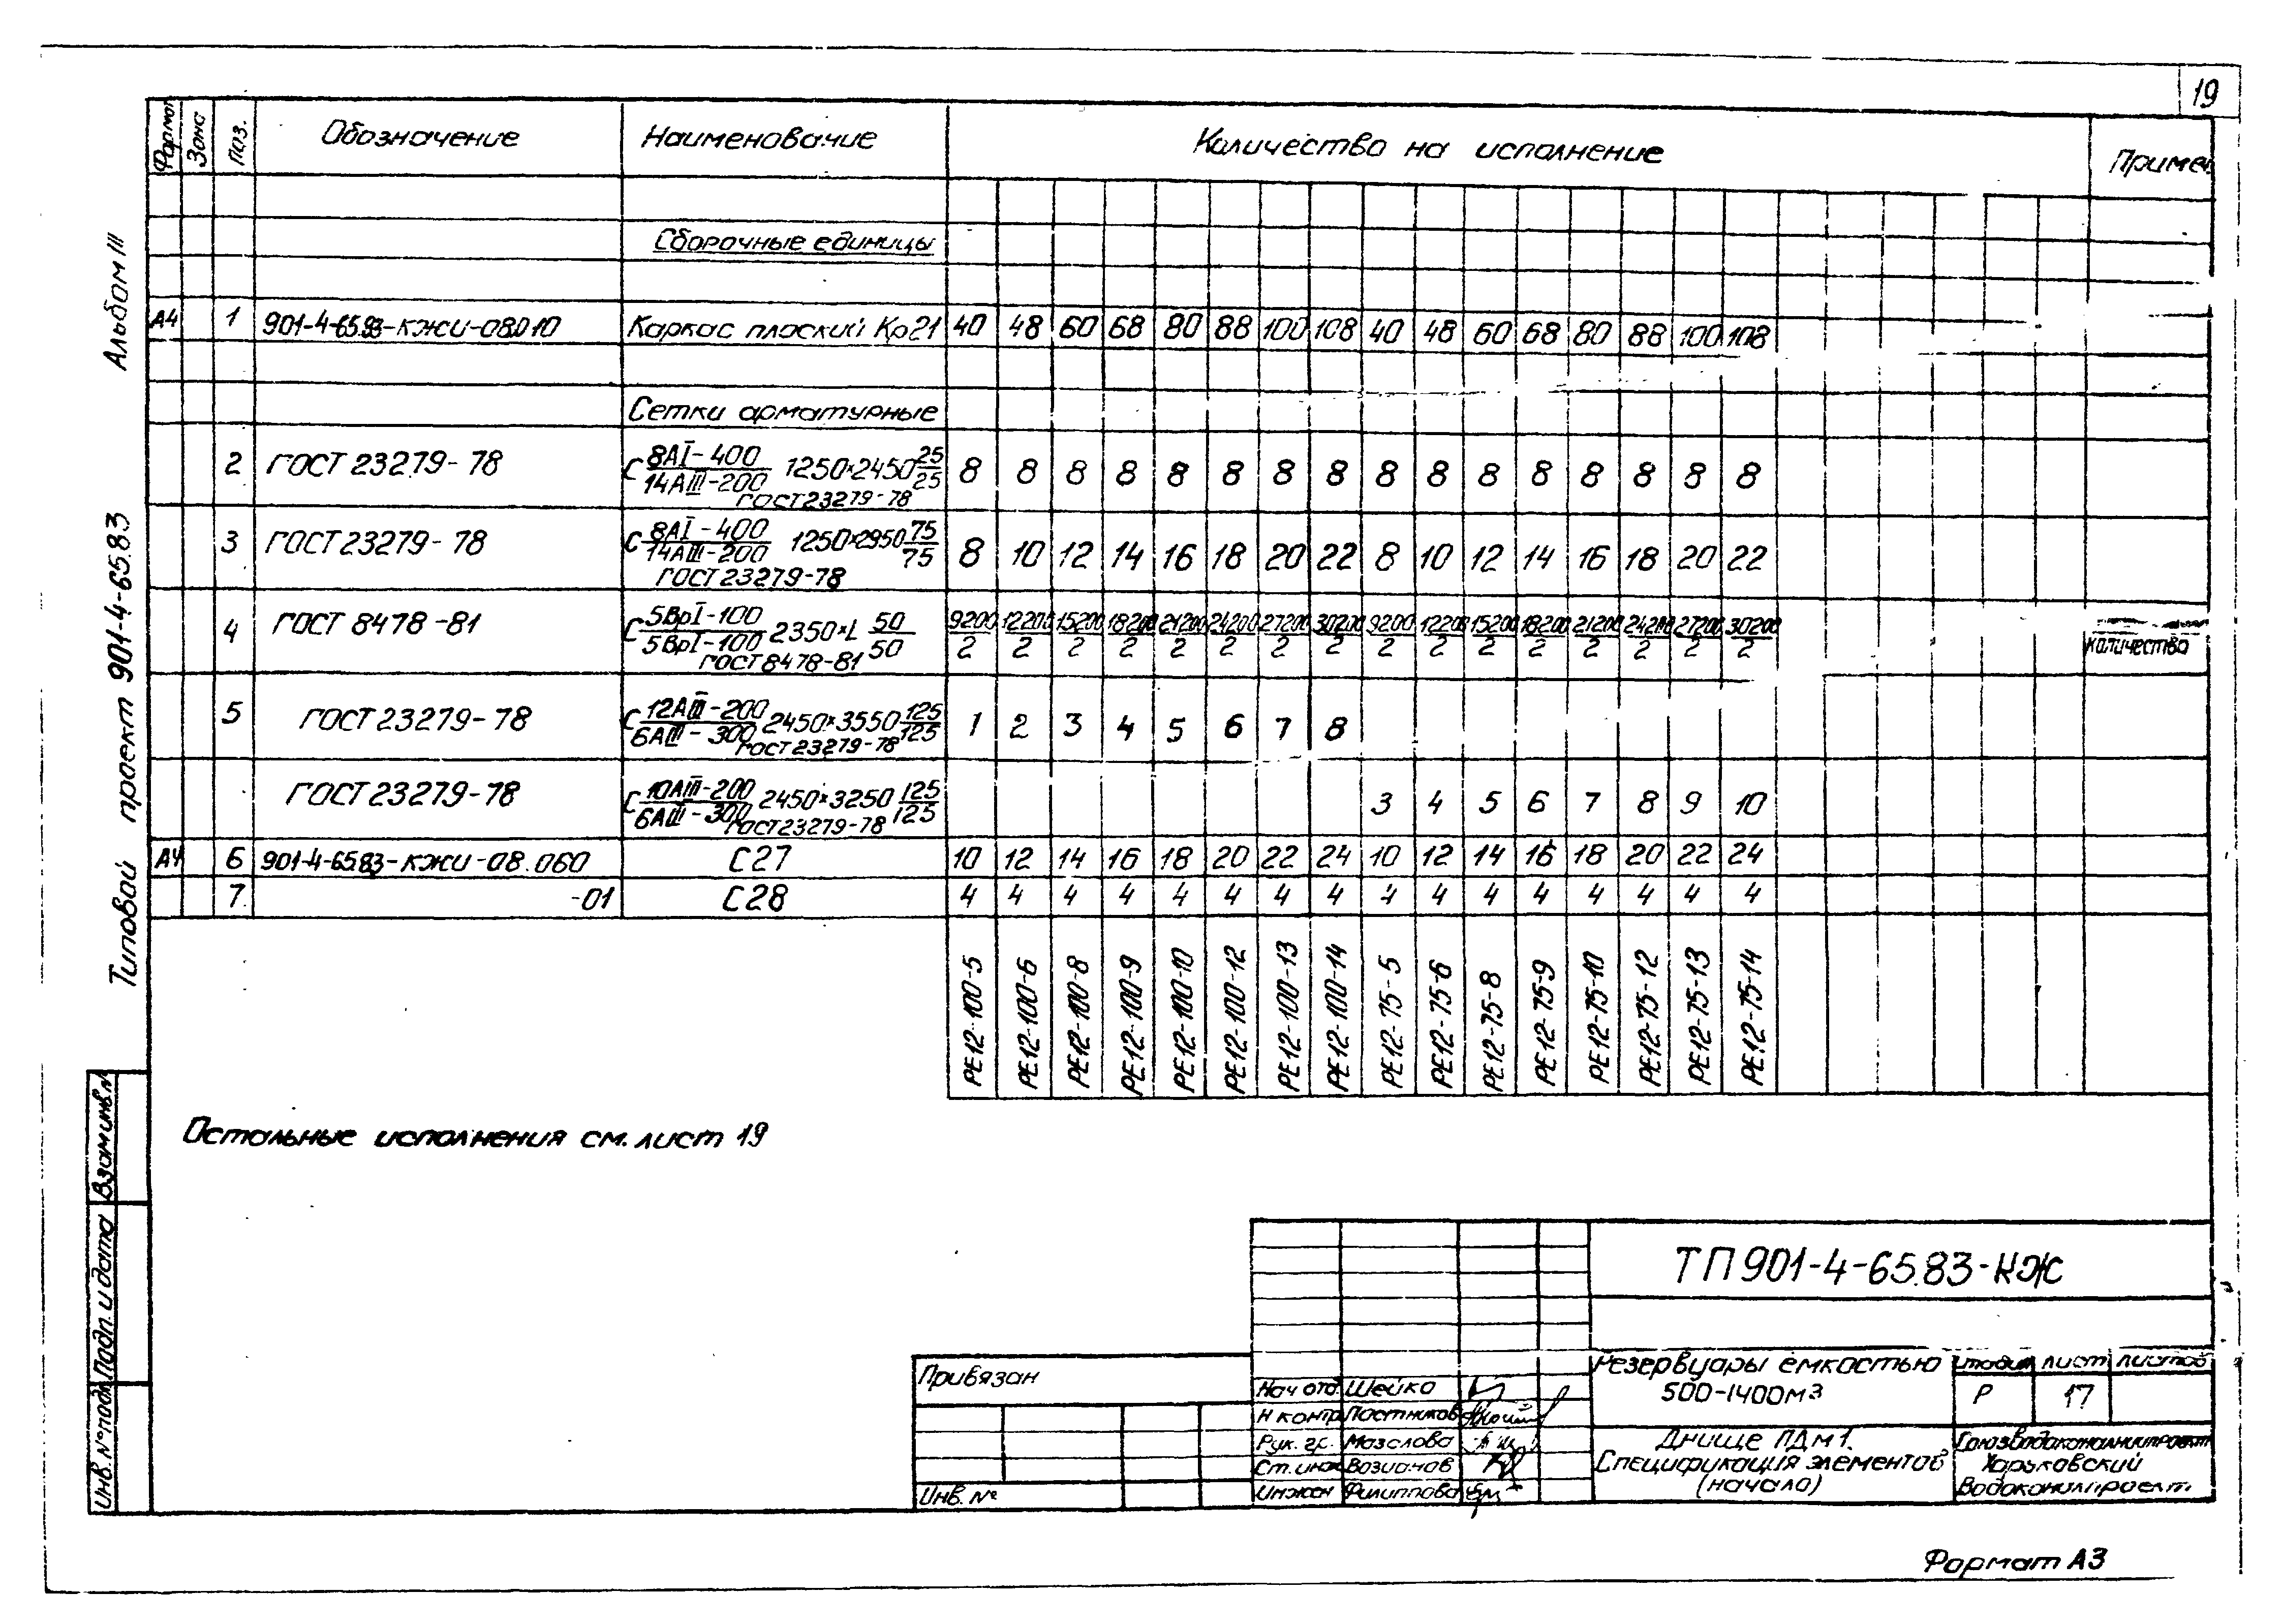 19
Формат Зона Поз. Обозначение Наименование Количество на исполнение Примеч
Сборочные единицы
А4 1 901-4-65.83-КЖИ-08.010 Каркас плоский Кр21 40 48 60 68 80 88 100 108 40 48 60 68 80 88 100 108
Сетки арматурные
2 ГОСТ 23279-78 С 8АI-400/14АIII-200 1250×2450 25/25 8 8 8 8 8 8 8 8 8 8 8 8 8 8 8 8
ГОСТ 23279-78
3 ГОСТ 23279-78 С 8АI-400/14АIII-200 1250×2950 75/75 8 10 12 14 16 18 20 22 8 10 12 14 16 18 20 22
ГОСТ 23279-78
4 ГОСТ 8478-81 С 5ВрI-100/5ВрI-100 2350×L 50/50 9200/2 12200/2 15200/2 18200/2 21200/2 24200/2 27200/2 30200/2 9200/2 12200/2 15200/2 18200/2 21200/2 24200/2 27200/2 30200/2 количество
ГОСТ 8478-81
5 ГОСТ 23279-78 С 12АIII-200/6АIII-300 2450×3550 125/125 1 2 3 4 5 6 7 8
ГОСТ 23279-78
ГОСТ 23279-78 С 10АIII-200/6АIII-300 2450×3250 125/125 3 4 5 6 7 8 9 10
ГОСТ 23279-78
А4 6 901-4-65.83-КЖИ-08.060 С27 10 12 14 16 18 20 22 24 10 12 14 16 18 20 22 24
7 -01 С28 4 4 4 4 4 4 4 4 4 4 4 4 4 4 4 4
РЕ12-100-5 РЕ12-100-6 РЕ12-100-8 РЕ12-100-9 РЕ12-100-10 РЕ12-100-12 РЕ12-100-13 РЕ12-100-14 РЕ12-75-5 РЕ12-75-6 РЕ12-75-8 РЕ12-75-9 РЕ12-75-10 РЕ12-75-12 РЕ12-75-13 РЕ12-75-14
Типовой проект 901-4-65.83 Альбом III
Остальные исполнения см. лист 19
Взам.инв.№
Подп. и дата
Инв.№подл.
ТП 901-4-65.83-КЖ
Привязан
Инв. №
Нач отд Шейко
Н контр Постников
Рук. гр. Мазалова
Ст. инж Возианов
Инжен Филиппова
Резервуары емкостью
500-1400м3
стадия лист листов
Р 17
Днище ПДм1.
Спецификация элементов
(начало)
Союзводоканалниипроект
Харьковский
Водоканалпроект
Формат А3